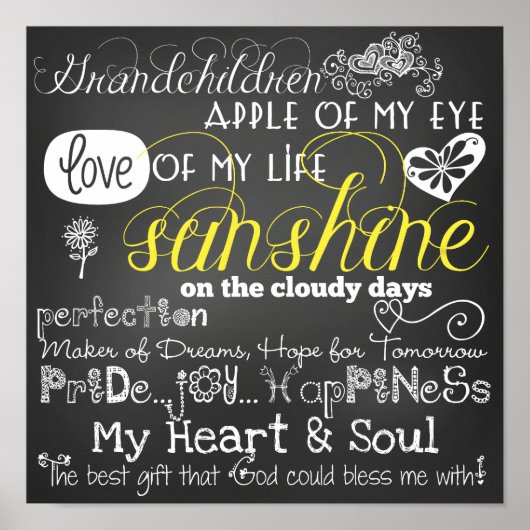 Grandchildren
APPLE OF MY EYE
love OF MY LIFE
sunshine
on the cloudy days
perfection
Maker of Dreams, Hope for Tomorrow
PRiDE...jOY... HapPiNeSs
My Heart & Soul
The best gift that God could bless me with!